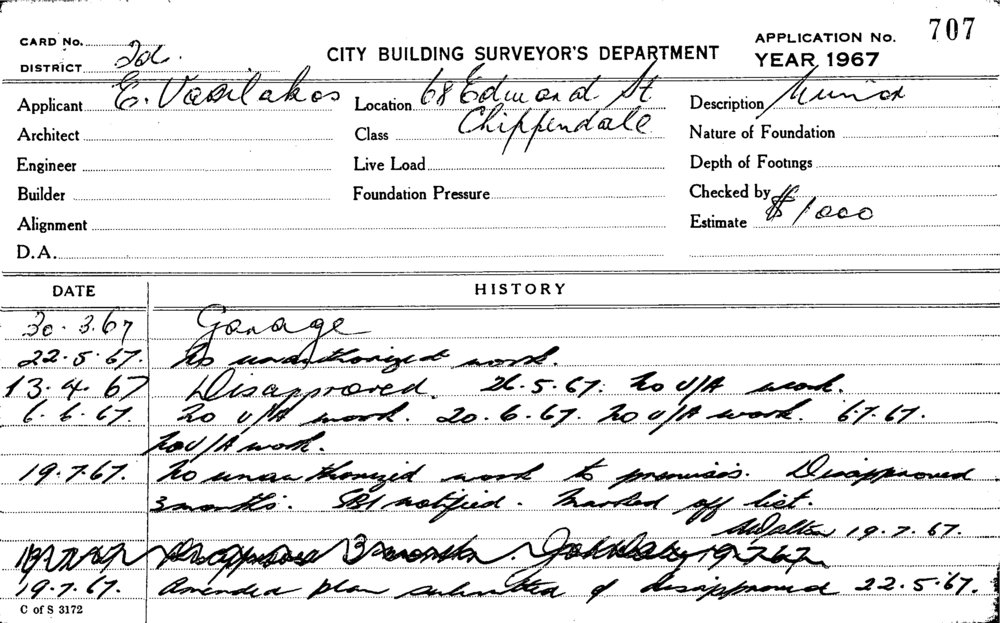 707
CARD No.
DISTRICT 2d.
CITY BUILDING SURVEYOR'S DEPARTMENT
APPLICATION No.
YEAR 1967
Applicant E. Vasilakos
Location 68 Edward St
Chippendale
Description Minor
Architect
Class
Nature of Foundation
Engineer
Live Load
Depth of Footings
Builder
Foundation Pressure
Checked by
Alignment
Estimate $1000
D.A.
DATE HISTORY
30.3.67 Garage
22.5.67. No unauthorized work.
13.4.67 Disapproved. 26.5.67. No U/A work.
6.6.67. No U/A work. 20.6.67. No U/A work. 6.7.67.
No U/A work.
19.7.67. No unauthorized work to premises. Disapproved
3 months. SBI notified. Marked off list.
19.7.67.
Disapproved 3 months. 19.7.67
19.7.67. Amended plan submitted & disapproved 22.5.67.
C of S 3172